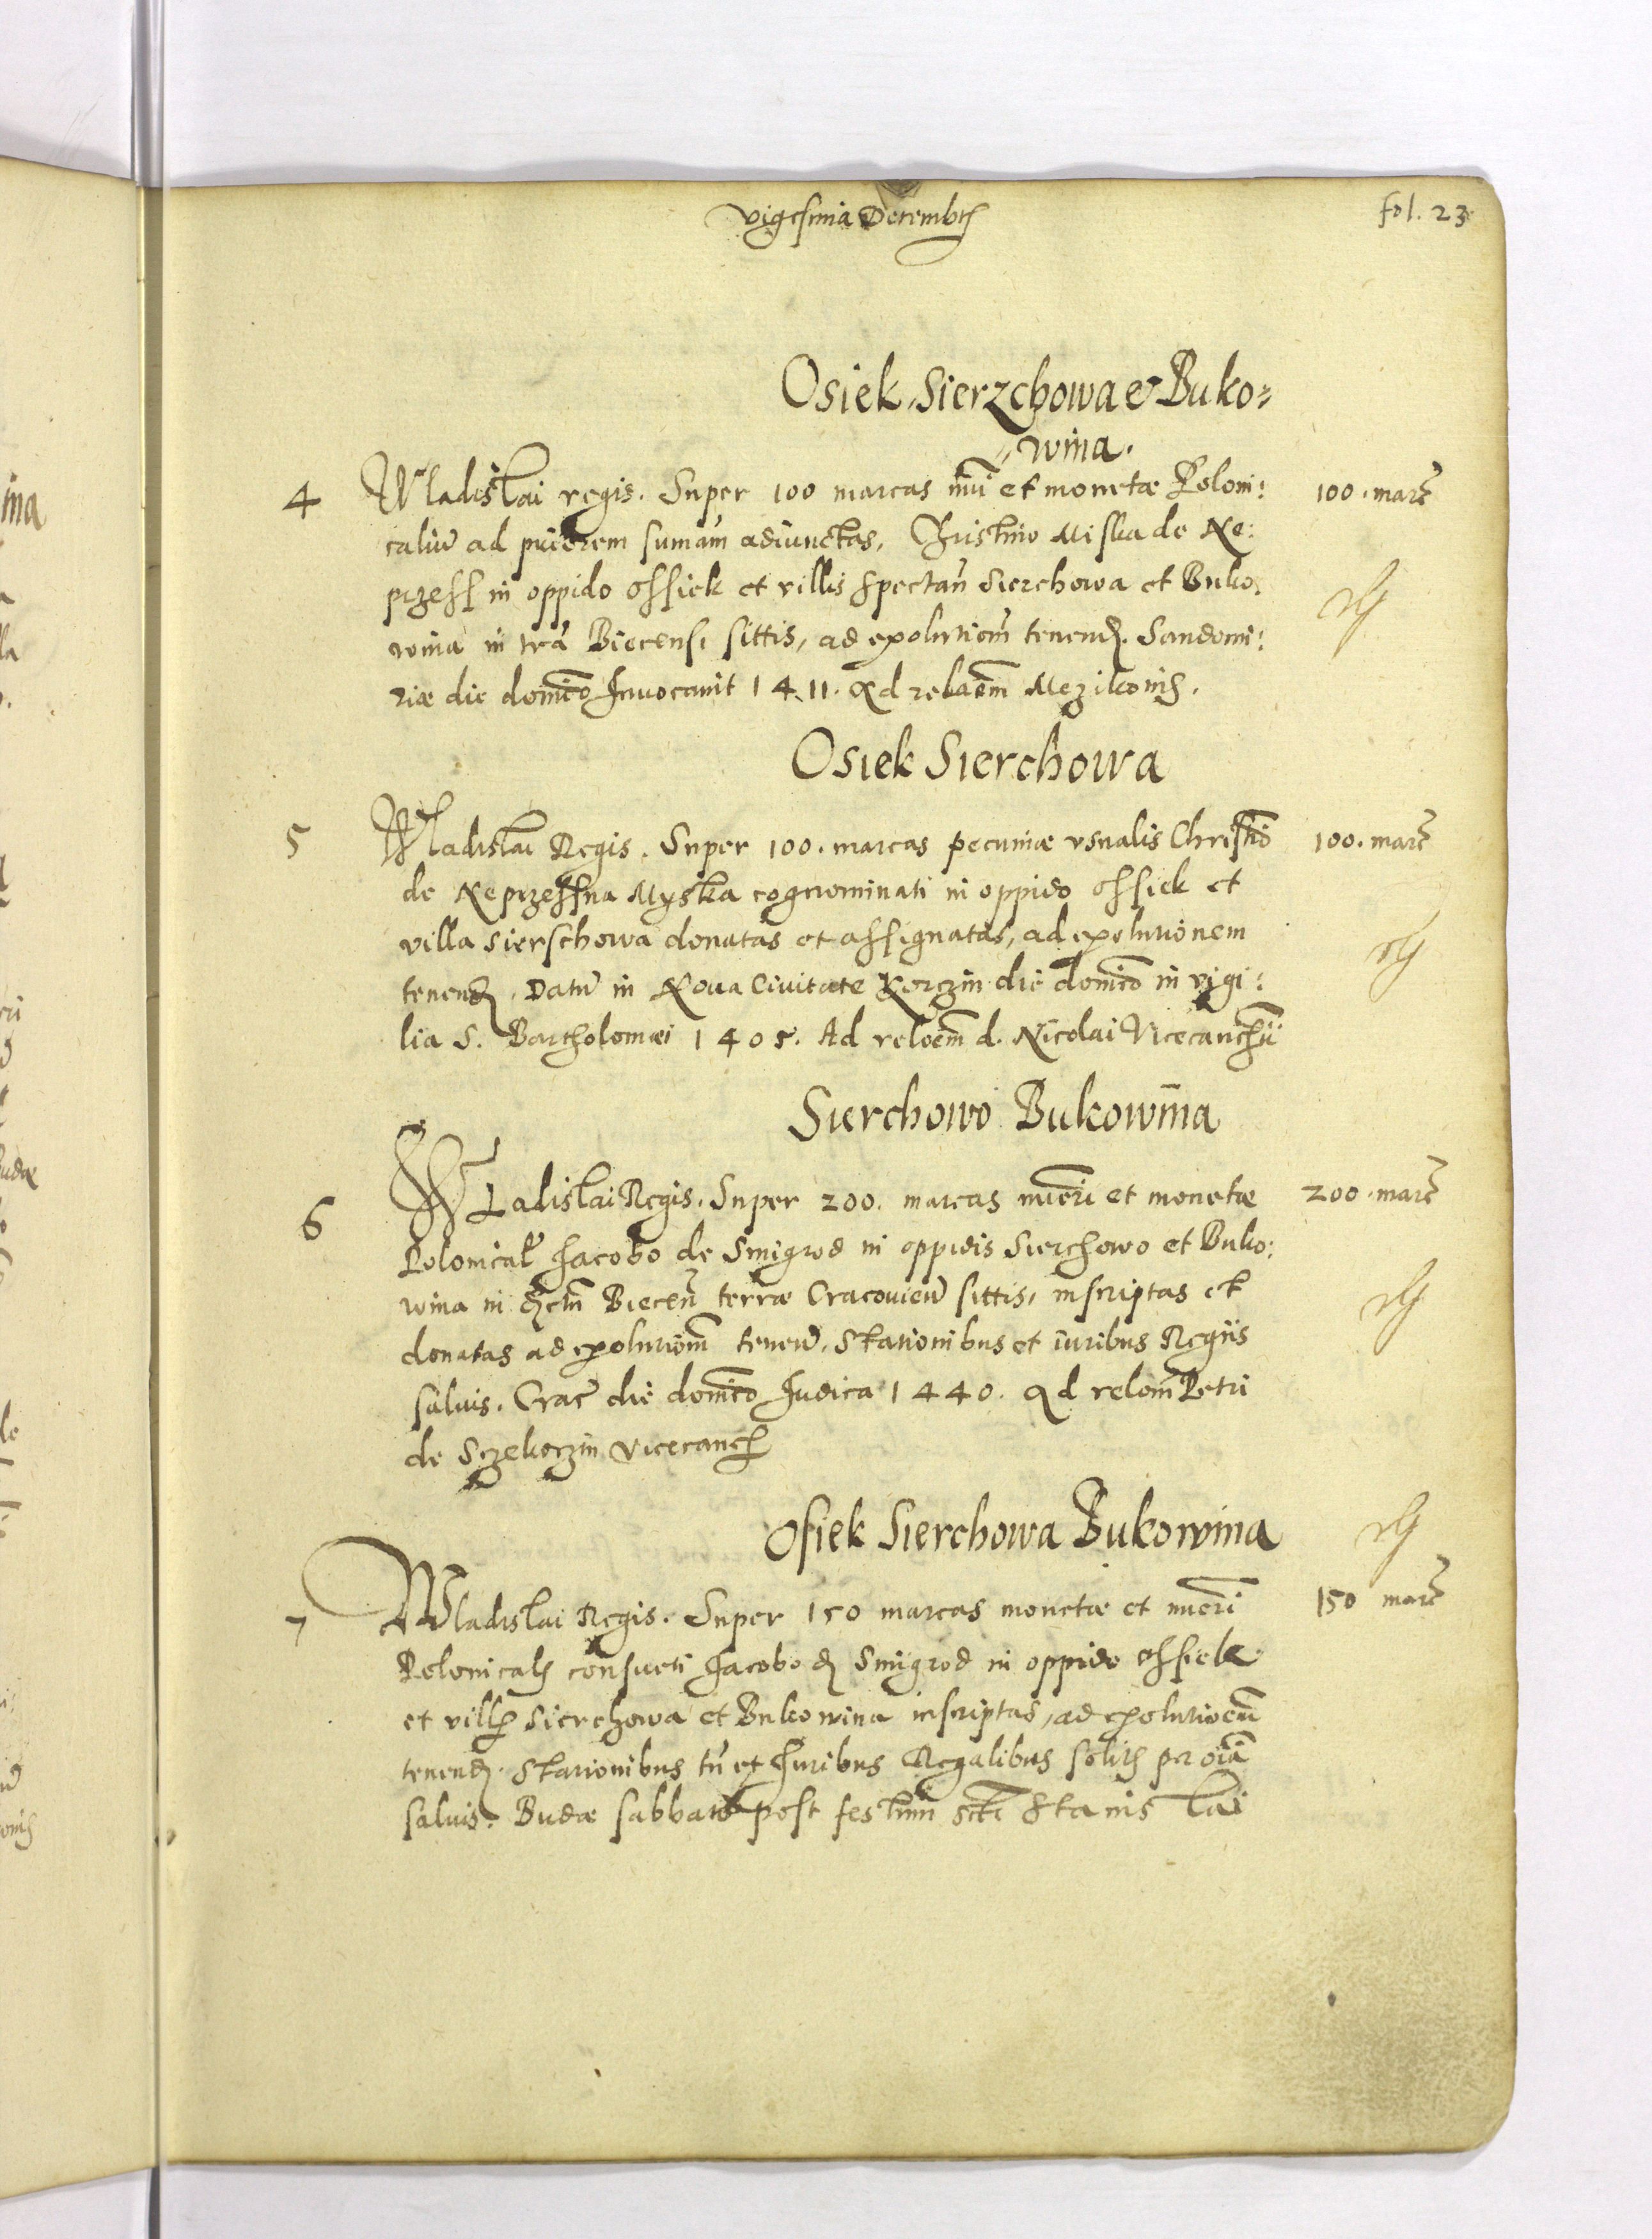 vigesima Decembris
fol. 23
Osiek, Sierzchowa et Buko=
wina.
4 Wladislai regis. Super 100 marcas nui et monetæ Poloni: 100. marc
caliu ad priorem sumam adiunctas, Christino Miska de Ne:
przess in oppido Ossiek et villis spectan Sierchowa et Buko:
wina in tra Biecensi sittis, ad exolutiom tenend. Sandomi:
riæ die domico Inuocauit 1411. Ad relaem
Osiek Sierchowa
5 Wladislai Regis. Super 100. marcas pecuniæ usualis Christio 100. marc
de Neprzessna Myska cognominati in oppido Ossiek et
villa Sierschowa donatas et assignatas, ad exolutionem
tenend. Datu in Noua Ciuitate Korczin die domico in vigi:
lia S. Bartholomæi 1405. Ad reloem d. Nicolai Vicecancii
Sierchowo Bukowina
6 Wladislai Regis. Super 200. marcas nueri et monetæ 200. marc
Polonical Jacobo de Smigrod in oppidis Sierchowo et Buko:
wina in Biecen terræ Cracouien sittis, inscriptas et
donatas ad exolutiom tenen. Stationibus et iuribus Regiis
saluis. Crac die domico Judica 1440. Ad relom Petri
de Sczekorzin vicecanc
Osiek Sierchowa Bukowina
7 Wladislai Regis. Super 150 marcas monetæ et nueri 150 marc
Polonicalis consueti Jacobo de Smigrod in oppido Ossiek
et villis Sierchowa et Bukowina inscriptas, ad exolutioem
tenend. Stationibus tn et Juribus Regalibus solitis per oia
saluis. Budæ sabbato post festum scti Stanislai